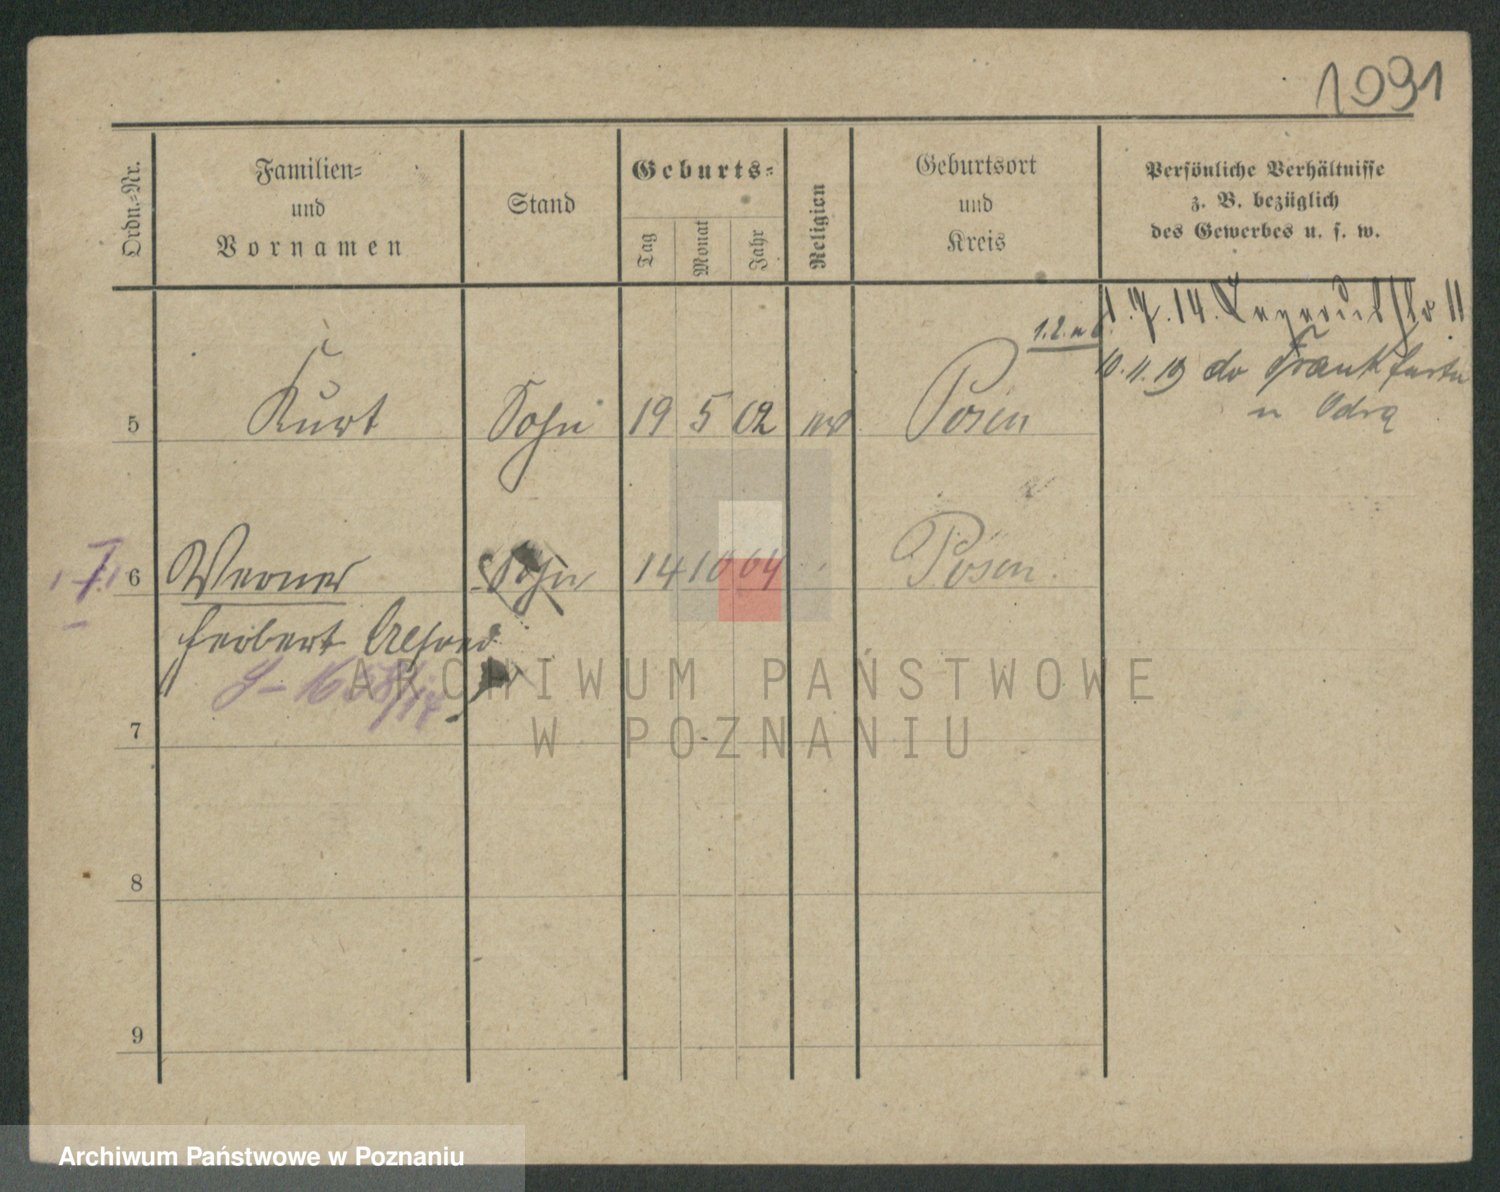 1091
Ordn.-Nr.
Familien-
und
Vornamen
Stand
Geburts-
Tag
Monat
Jahr
Religion
Geburtsort
und
Kreis
Persönliche Verhältnisse
z. B. bezüglich
des Gewerbes u. s. w.
1.2. u 6.
1.7.14.
10.11.19 do Frankfurtu
n Odrą
5 Kurt Sohn 19 5 02 Posen
6 Werner Sohn 14 10 04 Posen.
Herbert Alfred
7
8
9
ARCHIWUM PAŃSTWOWE
W POZNANIU
Archiwum Państwowe w Poznaniu